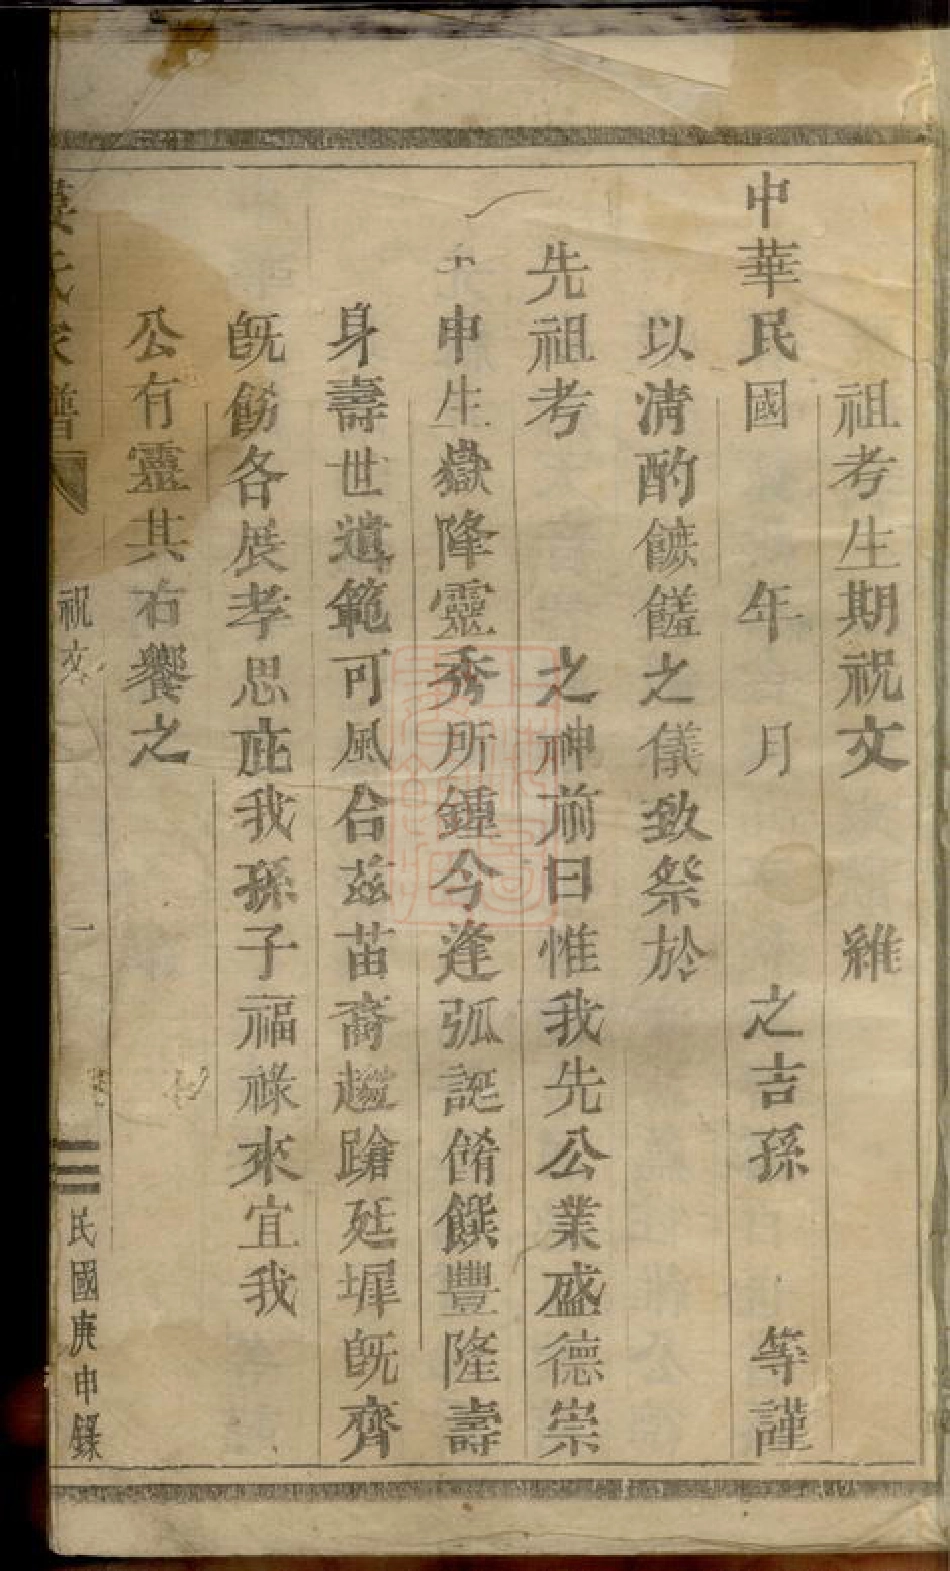 祖考生期祝文 維
中華民國 年 月 之吉孫 等謹
以清酌餼饈之儀致祭於
先祖考 之神前曰惟我先公業盛德崇
申生嶽降靈秀所鍾今逢弧誕餚饌豐隆壽
身壽世遺範可風台茲苗裔趨蹌廷墀既齊
既飭各展孝思庇我孫子福祿來宜我
公有靈其右饗之
氏家譜
祝文
一
民國庚申錄